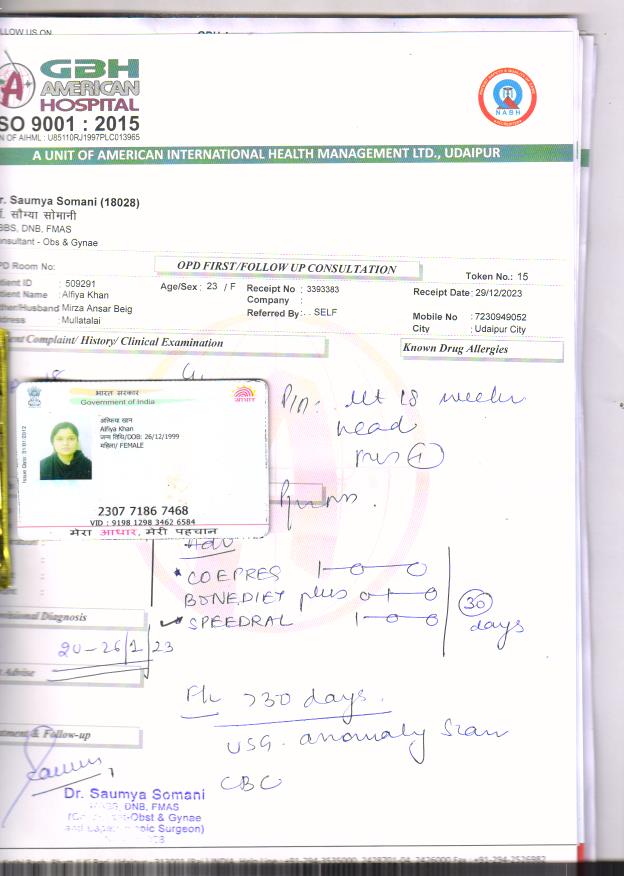 LLOW US ON
GBH
AMERICAN
HOSPITAL
SO 9001 : 2015
N OF AIHML : U85110RJ1997PLC013965
NABH
A UNIT OF AMERICAN INTERNATIONAL HEALTH MANAGEMENT LTD., UDAIPUR
r. Saumya Somani (18028)
सौम्या सोमानी
BBS, DNB, FMAS
onsultant - Obs & Gynae
PD Room No:
OPD FIRST/FOLLOW UP CONSULTATION
Token No.: 15
tient ID : 509291 Age/Sex : 23 / F Receipt No : 3393383 Receipt Date : 29/12/2023
tient Name : Alfiya Khan Company :
ther/Husband Mirza Ansar Beig Referred By : . SELF Mobile No :7230949052
dress : Mullatalai City : Udaipur City
ent Complaint/ History/ Clinical Examination
Known Drug Allergies
P/A: Ut 18 weeks
head
भारत सरकार
Government of India
अल्फिया खान
Alfiya Khan
जन्म तिथि/DOB: 26/12/1999
महिला/ FEMALE
Issue Date: 31/01/2012
2307 7186 7468
VID : 9198 1298 3462 6584
मेरा आधार, मेरी पहचान
Adv
COEPRES
BONEDIET plus
SPEEDRAL
30
days
visional Diagnosis
20-26/1/23
t Advise
>30 days.
USG. anomaly Scan
CBC
tment & Follow-up
Dr. Saumya Somani
DNB, FMAS
-Obst & Gynae
Surgeon)